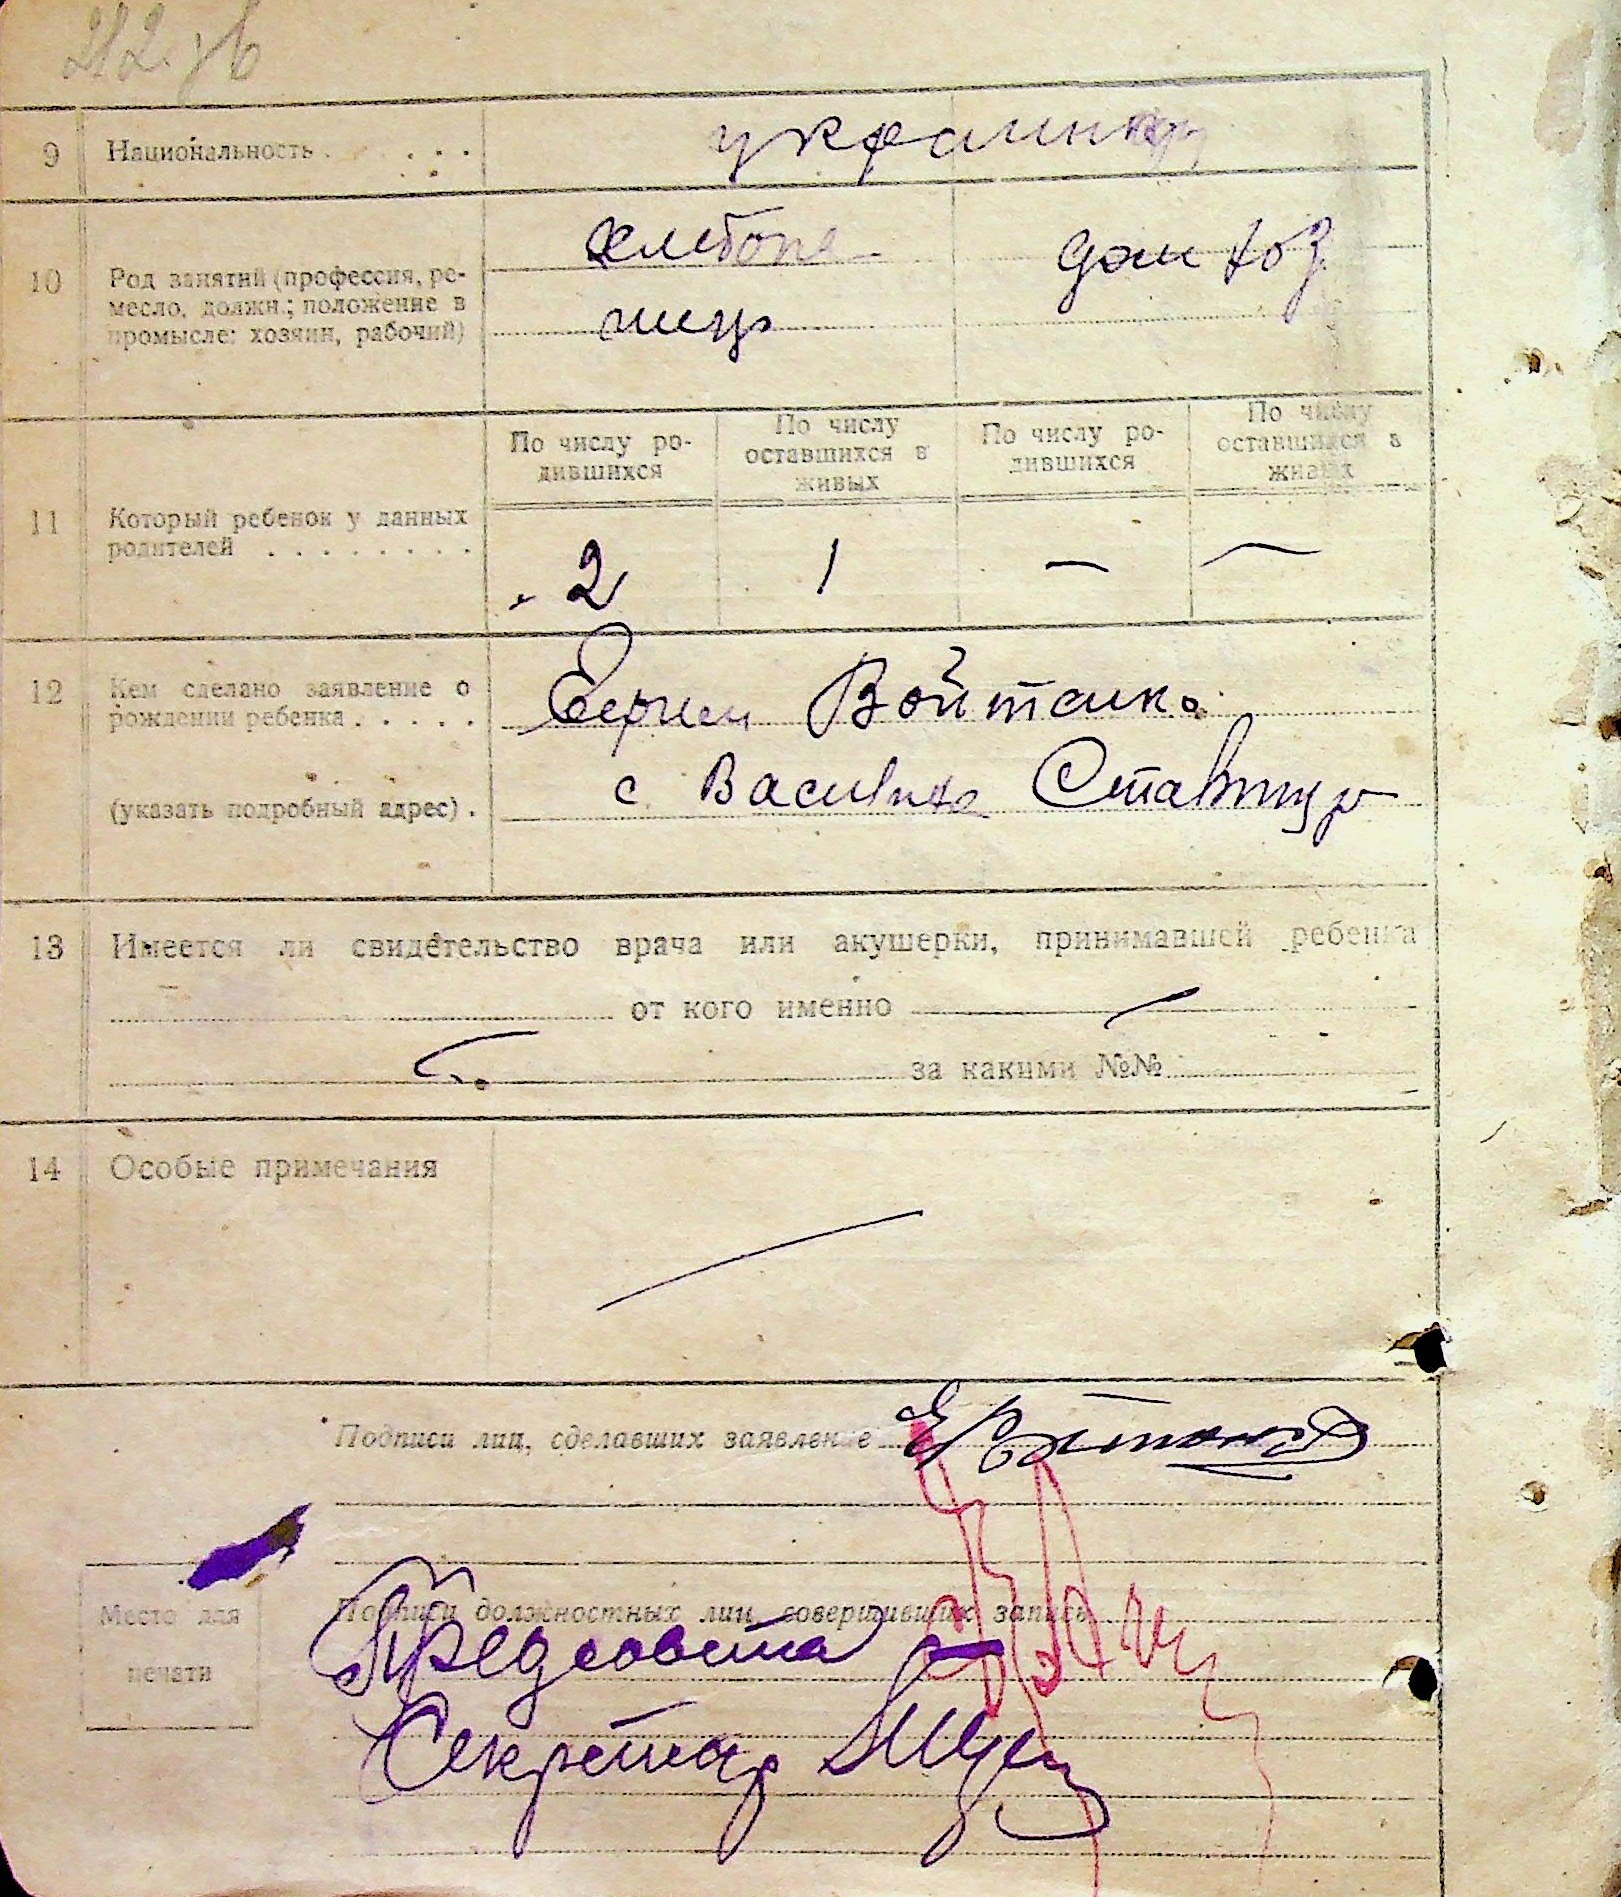 9 Национальность . . . .
украинцы
10 Род занятий (профессия, ре-
месло, должн.; положение в
промысле: хозяин, рабочий)
хлебопа
шец
дом хоз
11 Который ребенок у данных
родителей . . . . . . . .
По числу ро-
дившихся
По числу
оставшихся в
живых
По числу ро-
дившихся
По числу
оставшихся в
живых
2 1 — —
12 Кем сделано заявление о
рождении ребенка . . . . .
Войтанко
(указать подробный адрес) .
с
13 Имеется ли свидетельство врача или акушерки, принимавшей ребенка
от кого именно —
за какими №№
14 Особые примечания
Подписи лиц, сделавших заявление
Место для
печати
Подписи должностных лиц, совершивших запись
Предсовета
Секретар